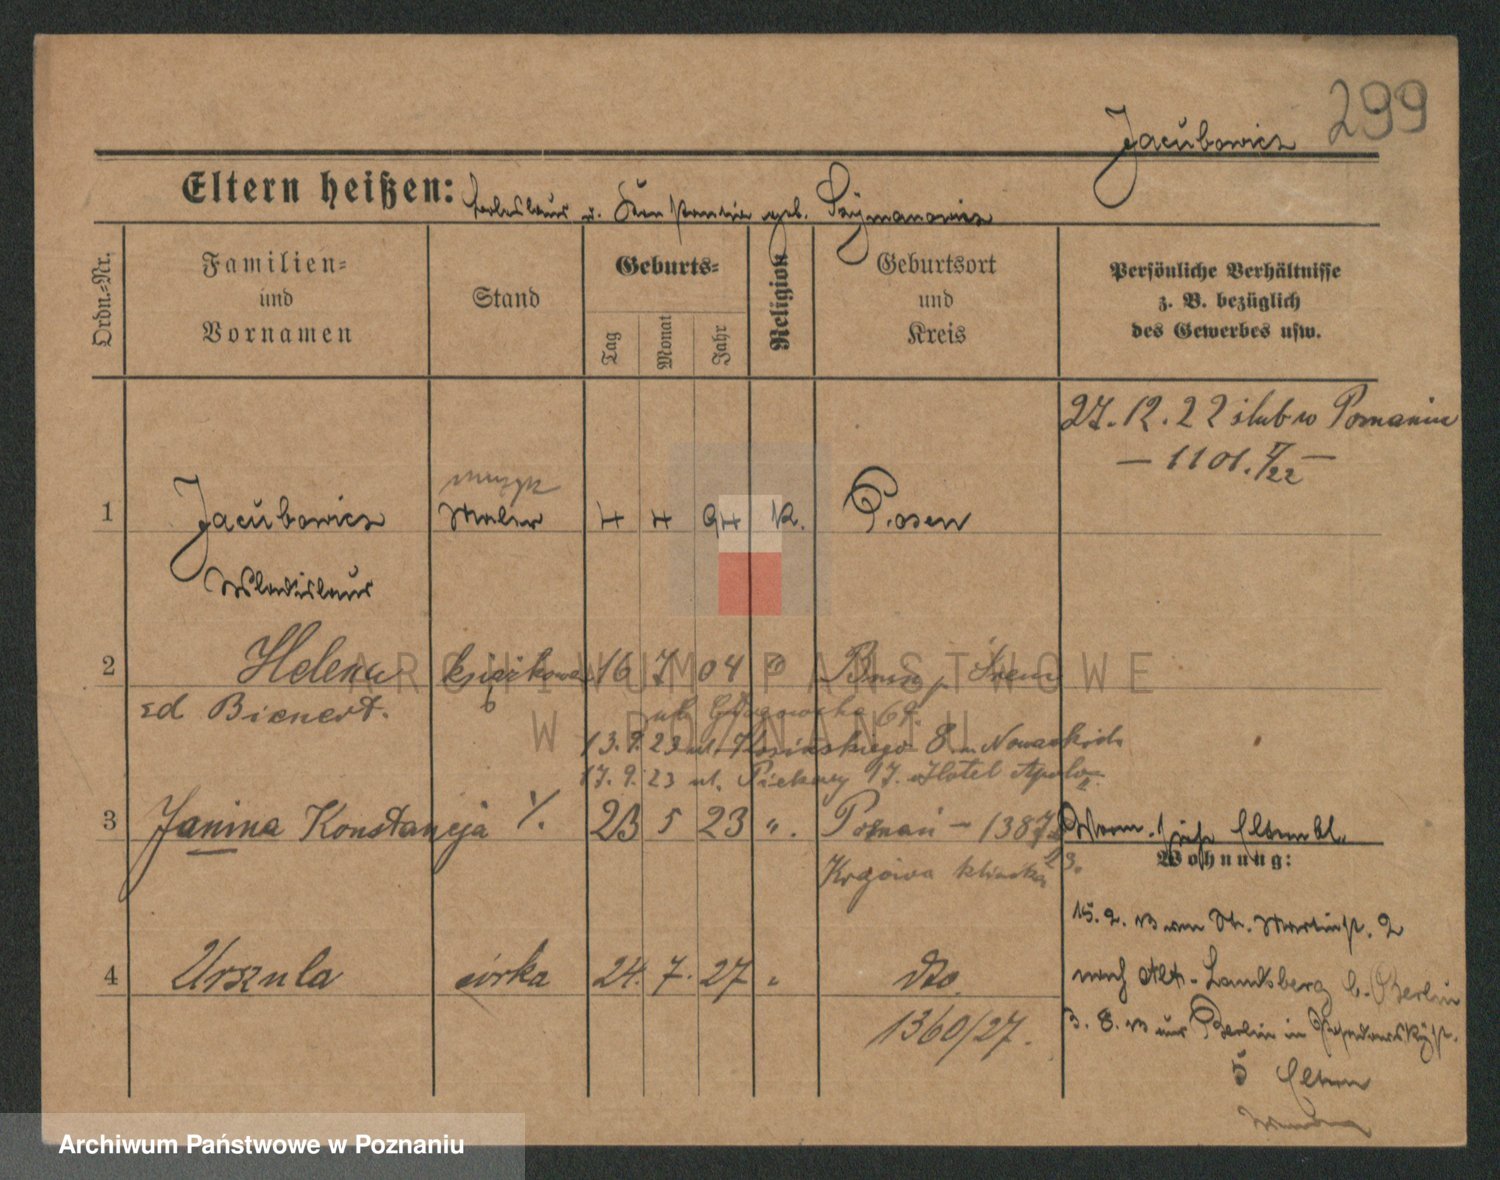 299
Jacubowicz
Eltern heißen: Ladislaus u. Konstantia geb. Szymanowicz
Ordn.-Nr.
Familien-
und
Vornamen
Stand
Geburts-
Tag
Monat
Jahr
Religion
Geburtsort
und
Kreis
Persönliche Verhältnisse
z. B. bezüglich
des Gewerbes usw.
27.12.22 ślub w Poznaniu
— 1101./22 —
muzyk
1 Jacubowicz Maler 7 7 97 k. Posen
Wladislaus
2 Helena 16 7 04 " Bnin p. Śrem
zd Bienert.
ul. 69.
13.9.23 ul. Kosińskiego 8 m Nowackich
17.9.23 ul. Piekary 17. Hotel Apolo
3 Janina Konstancja 23 5 23 ". Poznań – 1387
Krajowa klinika 23.
Wohnung:
15.2. 13 von St. Martinst. 2
4 Urszula córka 24. 7. 27 " dto.
nach Alt-Landsberg b. Berlin
1360/27.
3. 8. 13 aus Berlin in
5 Eltern
ARCHIWUM PAŃSTWOWE
W POZNANIU
Archiwum Państwowe w Poznaniu